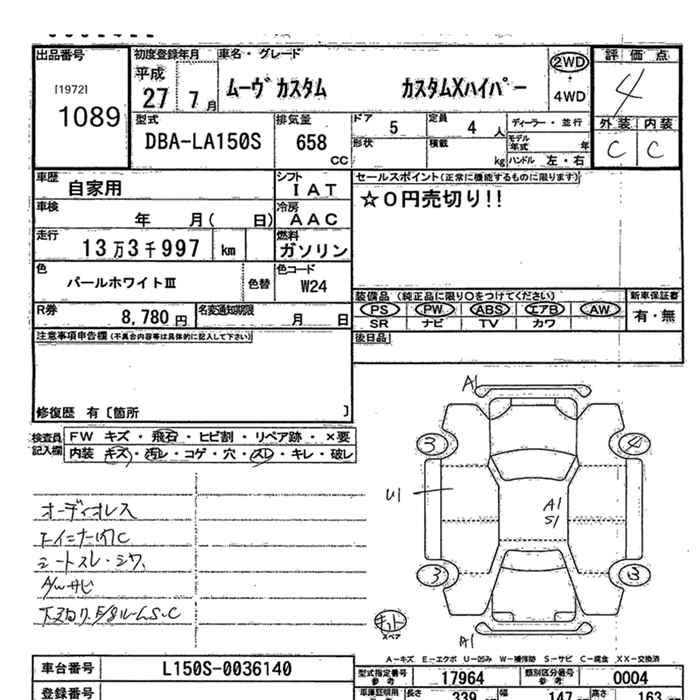 出品番号
[1972]
1089
初度登録年月
平成
27 7月
車名・グレード
ムーヴ カスタム カスタムXハイパー
2WD
4WD
評価点
4
外装 内装
C C
型式
DBA-LA150S
排気量
658
CC
ドア
5
定員
4人
ディーラー・並行
形状
積載
kg
モデル年式
年
ハンドル 左・右
車歴
自家用
シフト
IAT
車検
年 月( 日)
冷房
AAC
走行
13万3千997 km
燃料
ガソリン
色
パールホワイトⅢ
色替
色コード
W24
R券
8,780円
名変通知期限
月 日
セールスポイント(正常に機能するものに限ります)
☆0円売切り!!
装備品 (純正品に限り〇をつけてください)
新車保証書
PS PW ABS エアB AW
有・無
SR ナビ TV カワ
後日品
注意事項申告欄(不具合内容等は具体的に記入して下さい)
修復歴 有〔箇所 〕
検査員記入欄
FW キズ・飛石・ヒビ割・リペア跡・×要
内装 キズ・汚レ・コゲ・穴・スレ・キレ・破レ
オーディオレス
シートスレ・シワ、
A/Wサビ
A1
3
4
U1
A1
S1
3
3
スペア
A1
A-キズ E-エクボ U-凹み W-補修跡 S-サビ C-腐食 XX-交換済
車台番号
L150S-0036140
型式指定番号
参考
17964
類別区分番号
参考
0004
登録番号
長さ
339
幅
147
高さ
163